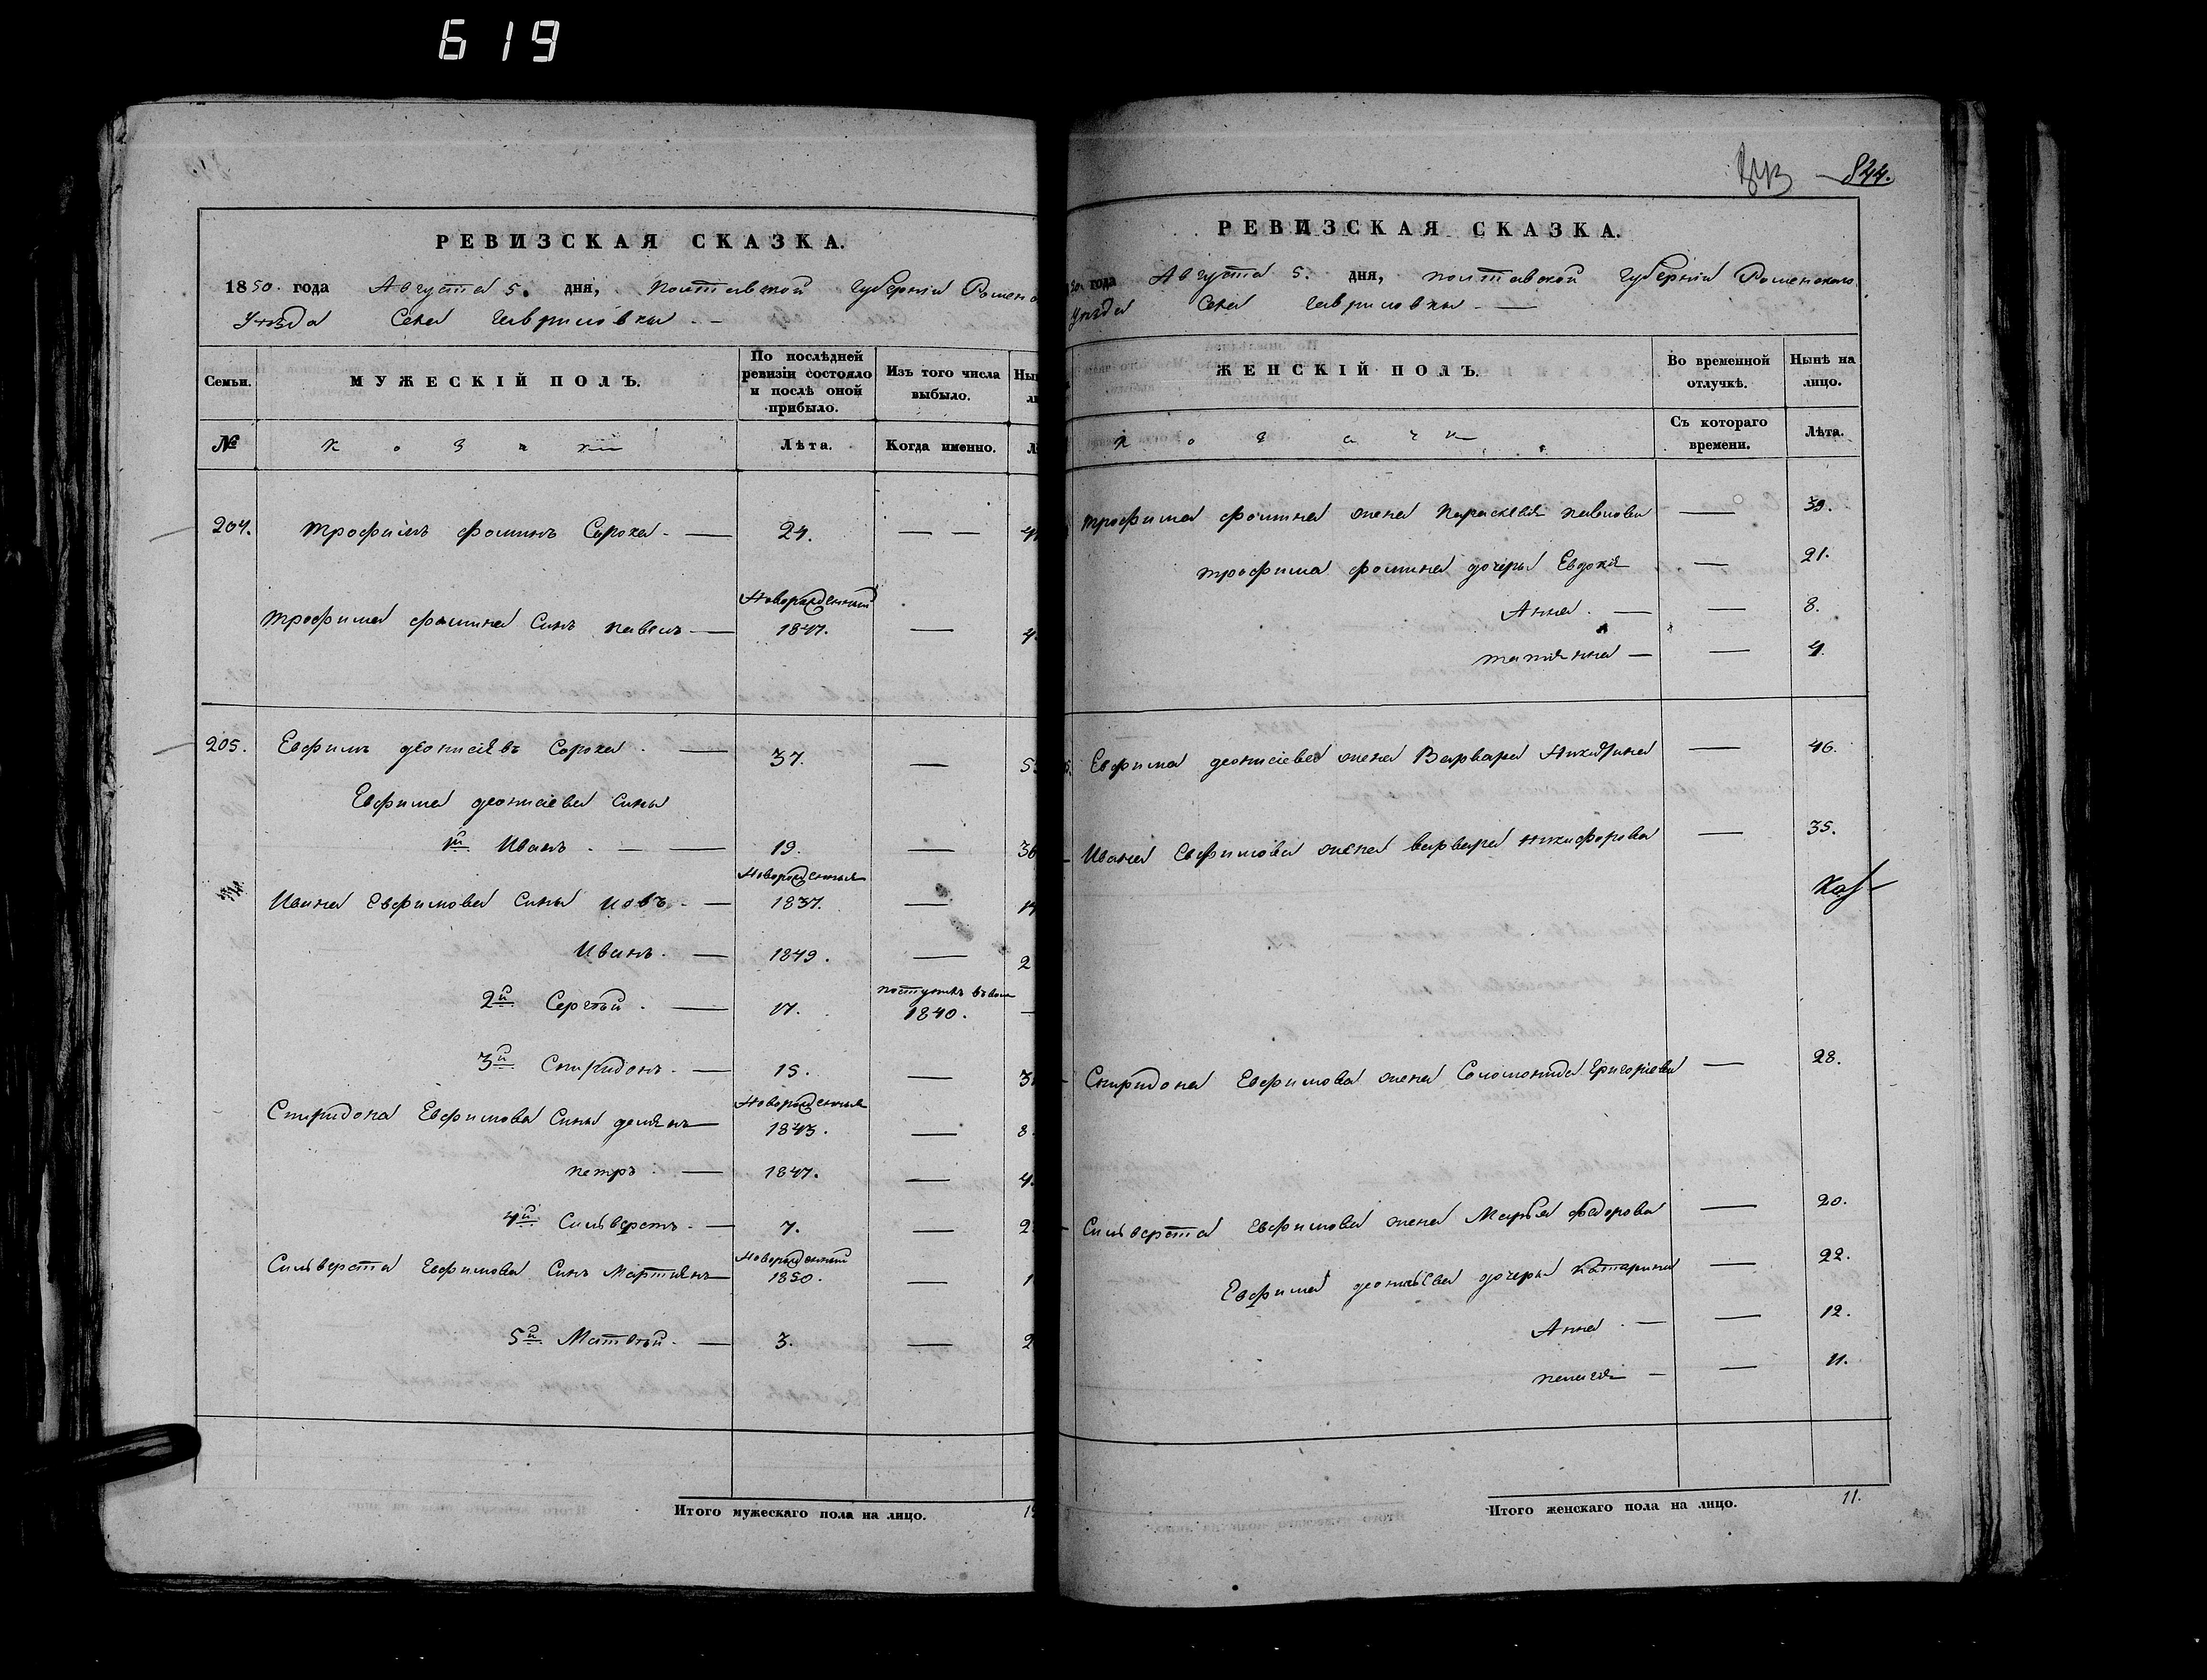 619
РЕВИЗСКАЯ СКАЗКА.
1850. года Августа 5. дня, Полтавской Губерніи Роменс
Уезда Села Гавриловки
Семьи.
МУЖЕСКІЙ ПОЛЪ.
По послѣдней ревизіи состояло и послѣ оной прибыло.
Изъ того числа выбыло.
№
Козаки
Лѣта.
Когда именно.
204. Трофимъ Фоминъ Сорока. 24.
Трофима Фомина Сынъ Павелъ Новорожденный 1847. 4
205. Евфимъ Деонисіевъ Сорока. 37.
Евфима Деонисіева Сины
1й Иванъ. 19.
Ивана Евфимова Сины Іовъ. Новорожденныя 1837.
Иванъ. 1849. 2
2й Сергѣй. 17. поступилъ 1840.
3й Спиридонъ. 15.
Спиридона Евфимова Сины Демянъ Новорожденныя 1843. 8.
Петръ. 1847. 4.
4й Сильверстъ. 7.
Сильверста Евфимова Синъ Мартинъ Новорожденный 1850. 1
5й Матвѣй. 3.
Итого мужескаго пола на лицо.
844.
РЕВИЗСКАЯ СКАЗКА.
года Августа 5. дня, Полтавской Губерніи Роменскаго
Уезда Села Гавриловки
ЖЕНСКІЙ ПОЛЪ.
Во временной отлучкѣ.
Нынѣ на лицо.
Козачки
Съ котораго времени.
Лѣта.
Трофима Фомина жена Параскевія Павлова 39.
Трофима Фомина дочеры Евдокія 21.
Анна. 8.
Татіянна 4.
Евфима Деонисіева жена Варвара Никитина 46.
Ивана Евфимова жена Варвара Никифорова 35.
Спиридона Евфимова жена Соломонида Григоріева 28.
Сильверста Евфимова жена Марья Федорова 20.
Евфима Деонисіева дочеры Катарина 22.
Анна. 12.
Пелагія 11.
Итого женскаго пола на лицо. 11.